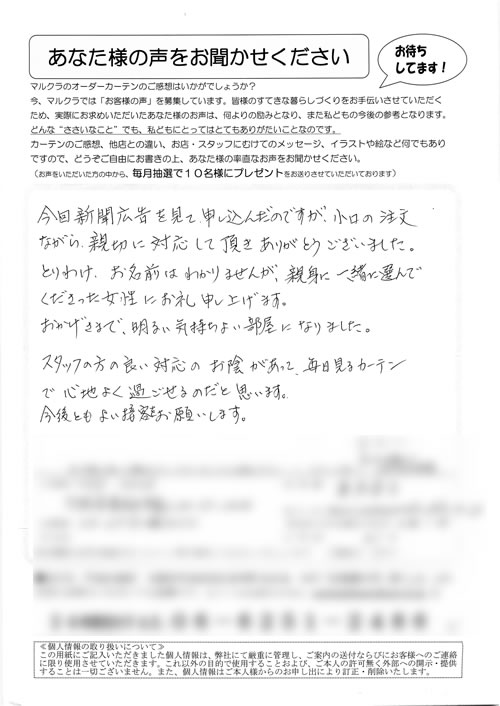 あなた様の声をお聞かせください
お待ち
してます！
マルクラのオーダーカーテンのご感想はいかがでしょうか？
今、マルクラでは「お客様の声」を募集しています。皆様のすてきな暮らしづくりをお手伝いさせていただく
ため、実際にお求めいただいたあなた様のお声は、何よりの励みとなり、また私どもの今後の参考となります。
どんな“ささいなこと”でも、私どもにとってはとてもありがたいことなのです。
カーテンのご感想、他店との違い、お店・スタッフにむけてのメッセージ、イラストや絵など何でもあり
ですので、どうぞご自由にお書きの上、あなた様の率直なお声をお聞かせください。
（お声をいただいた方の中から、毎月抽選で１０名様にプレゼントをお送りさせていただいております）
今回新聞広告を見て、申し込んだのですが、小口の注文
ながら、親切に対応して頂きありがとうございました。
とりわけ、お名前はわかりませんが、親身に一緒に選んで
くださった女性にお礼申し上げます。
おかげさまで、明るい気持ちよい部屋になりました。
スタッフの方の良い対応のお陰があって、毎日見るカーテン
で心地よく過ごせるのだと思います。
今後ともよい接客お願いします。
≪個人情報の取り扱いについて≫
この用紙にご記入いただきました個人情報は、弊社にて厳重に管理し、ご案内の送付ならびにお客様へのご連絡
に限り使用させていただきます。これ以外の目的で使用することおよび、ご本人の許可無く外部への開示・提供
することは一切ございません。また、個人情報はご本人様からのお申し出により訂正・削除いたします。